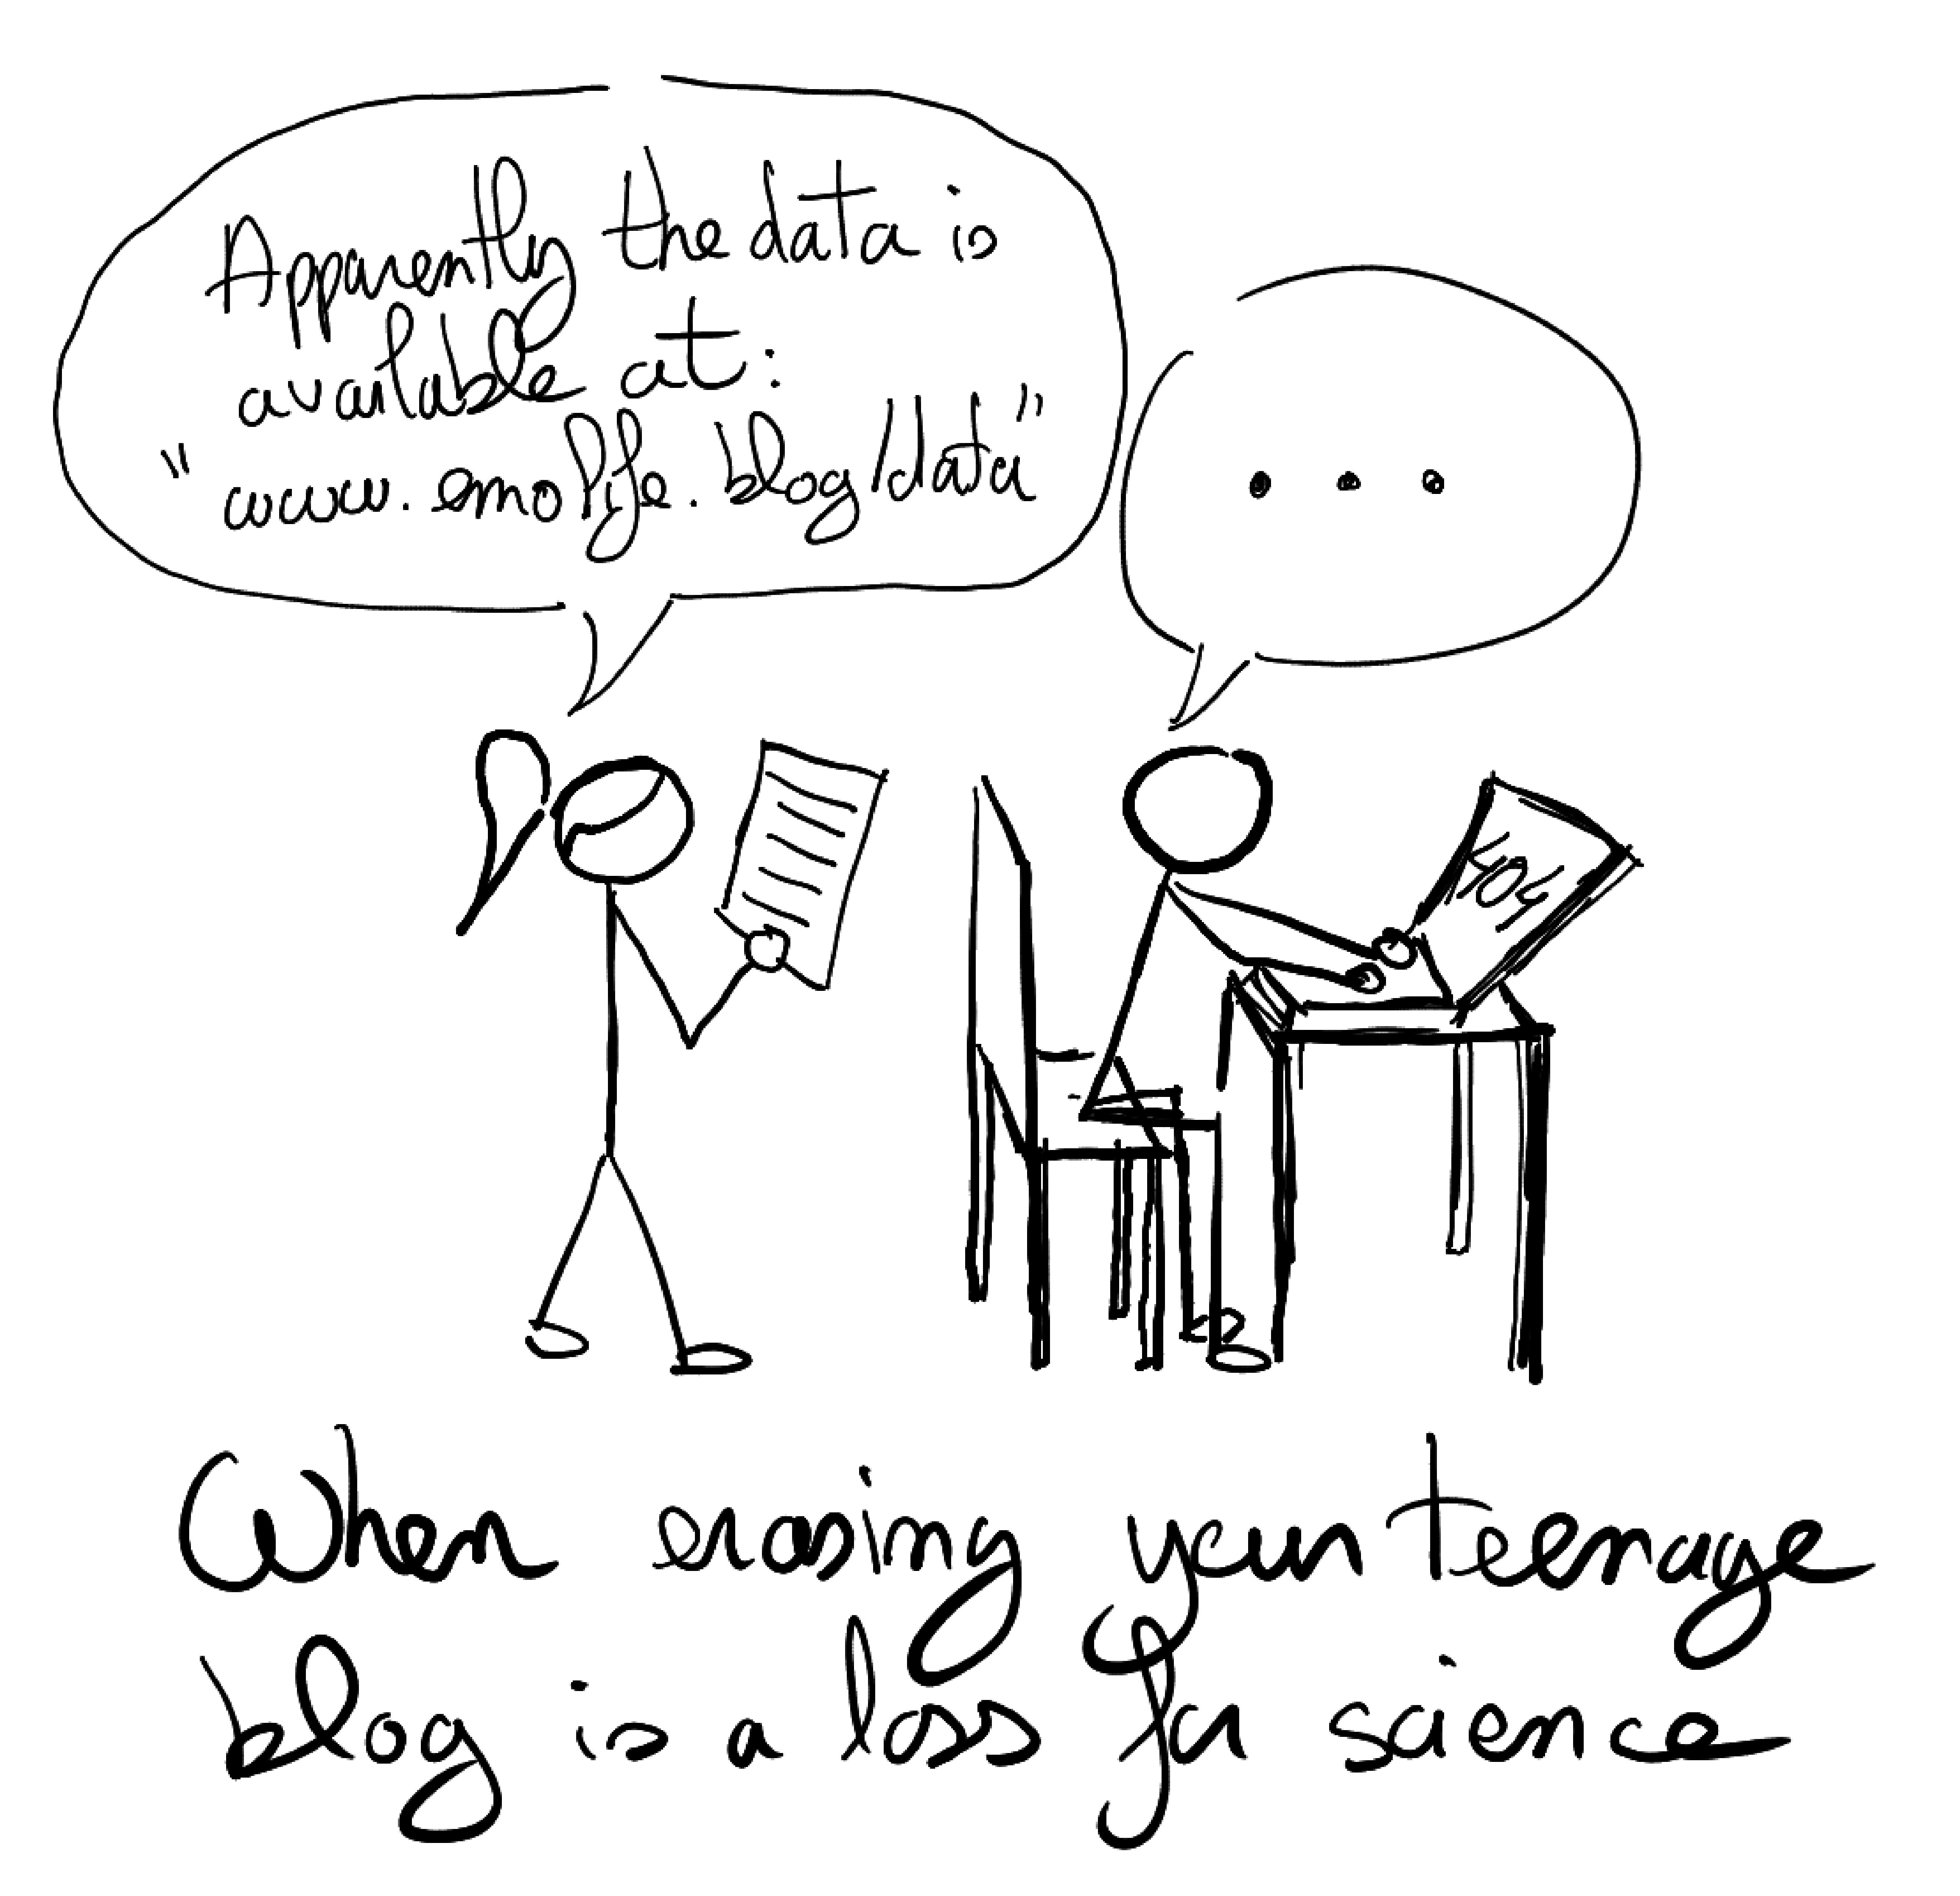 Apparently the data is
available at:
"www.emolife.blog/data"
...
404
When erasing your teenage
blog is a loss for science